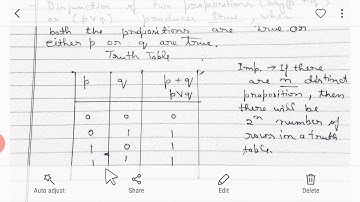 - Disjunction of two propositions (say (p + q)
or (p ∨ q) produces true, when
both the propositions are true or
either p or q are true.
Truth Table
p q p + q
p ∨ q
0 0 0
0 1 1
1 0 1
1 1 1
Imp. → If there
are n distinct
proposition, then
there will be
2ⁿ number of
rows in a truth
table.
Auto adjust Share Edit Delete